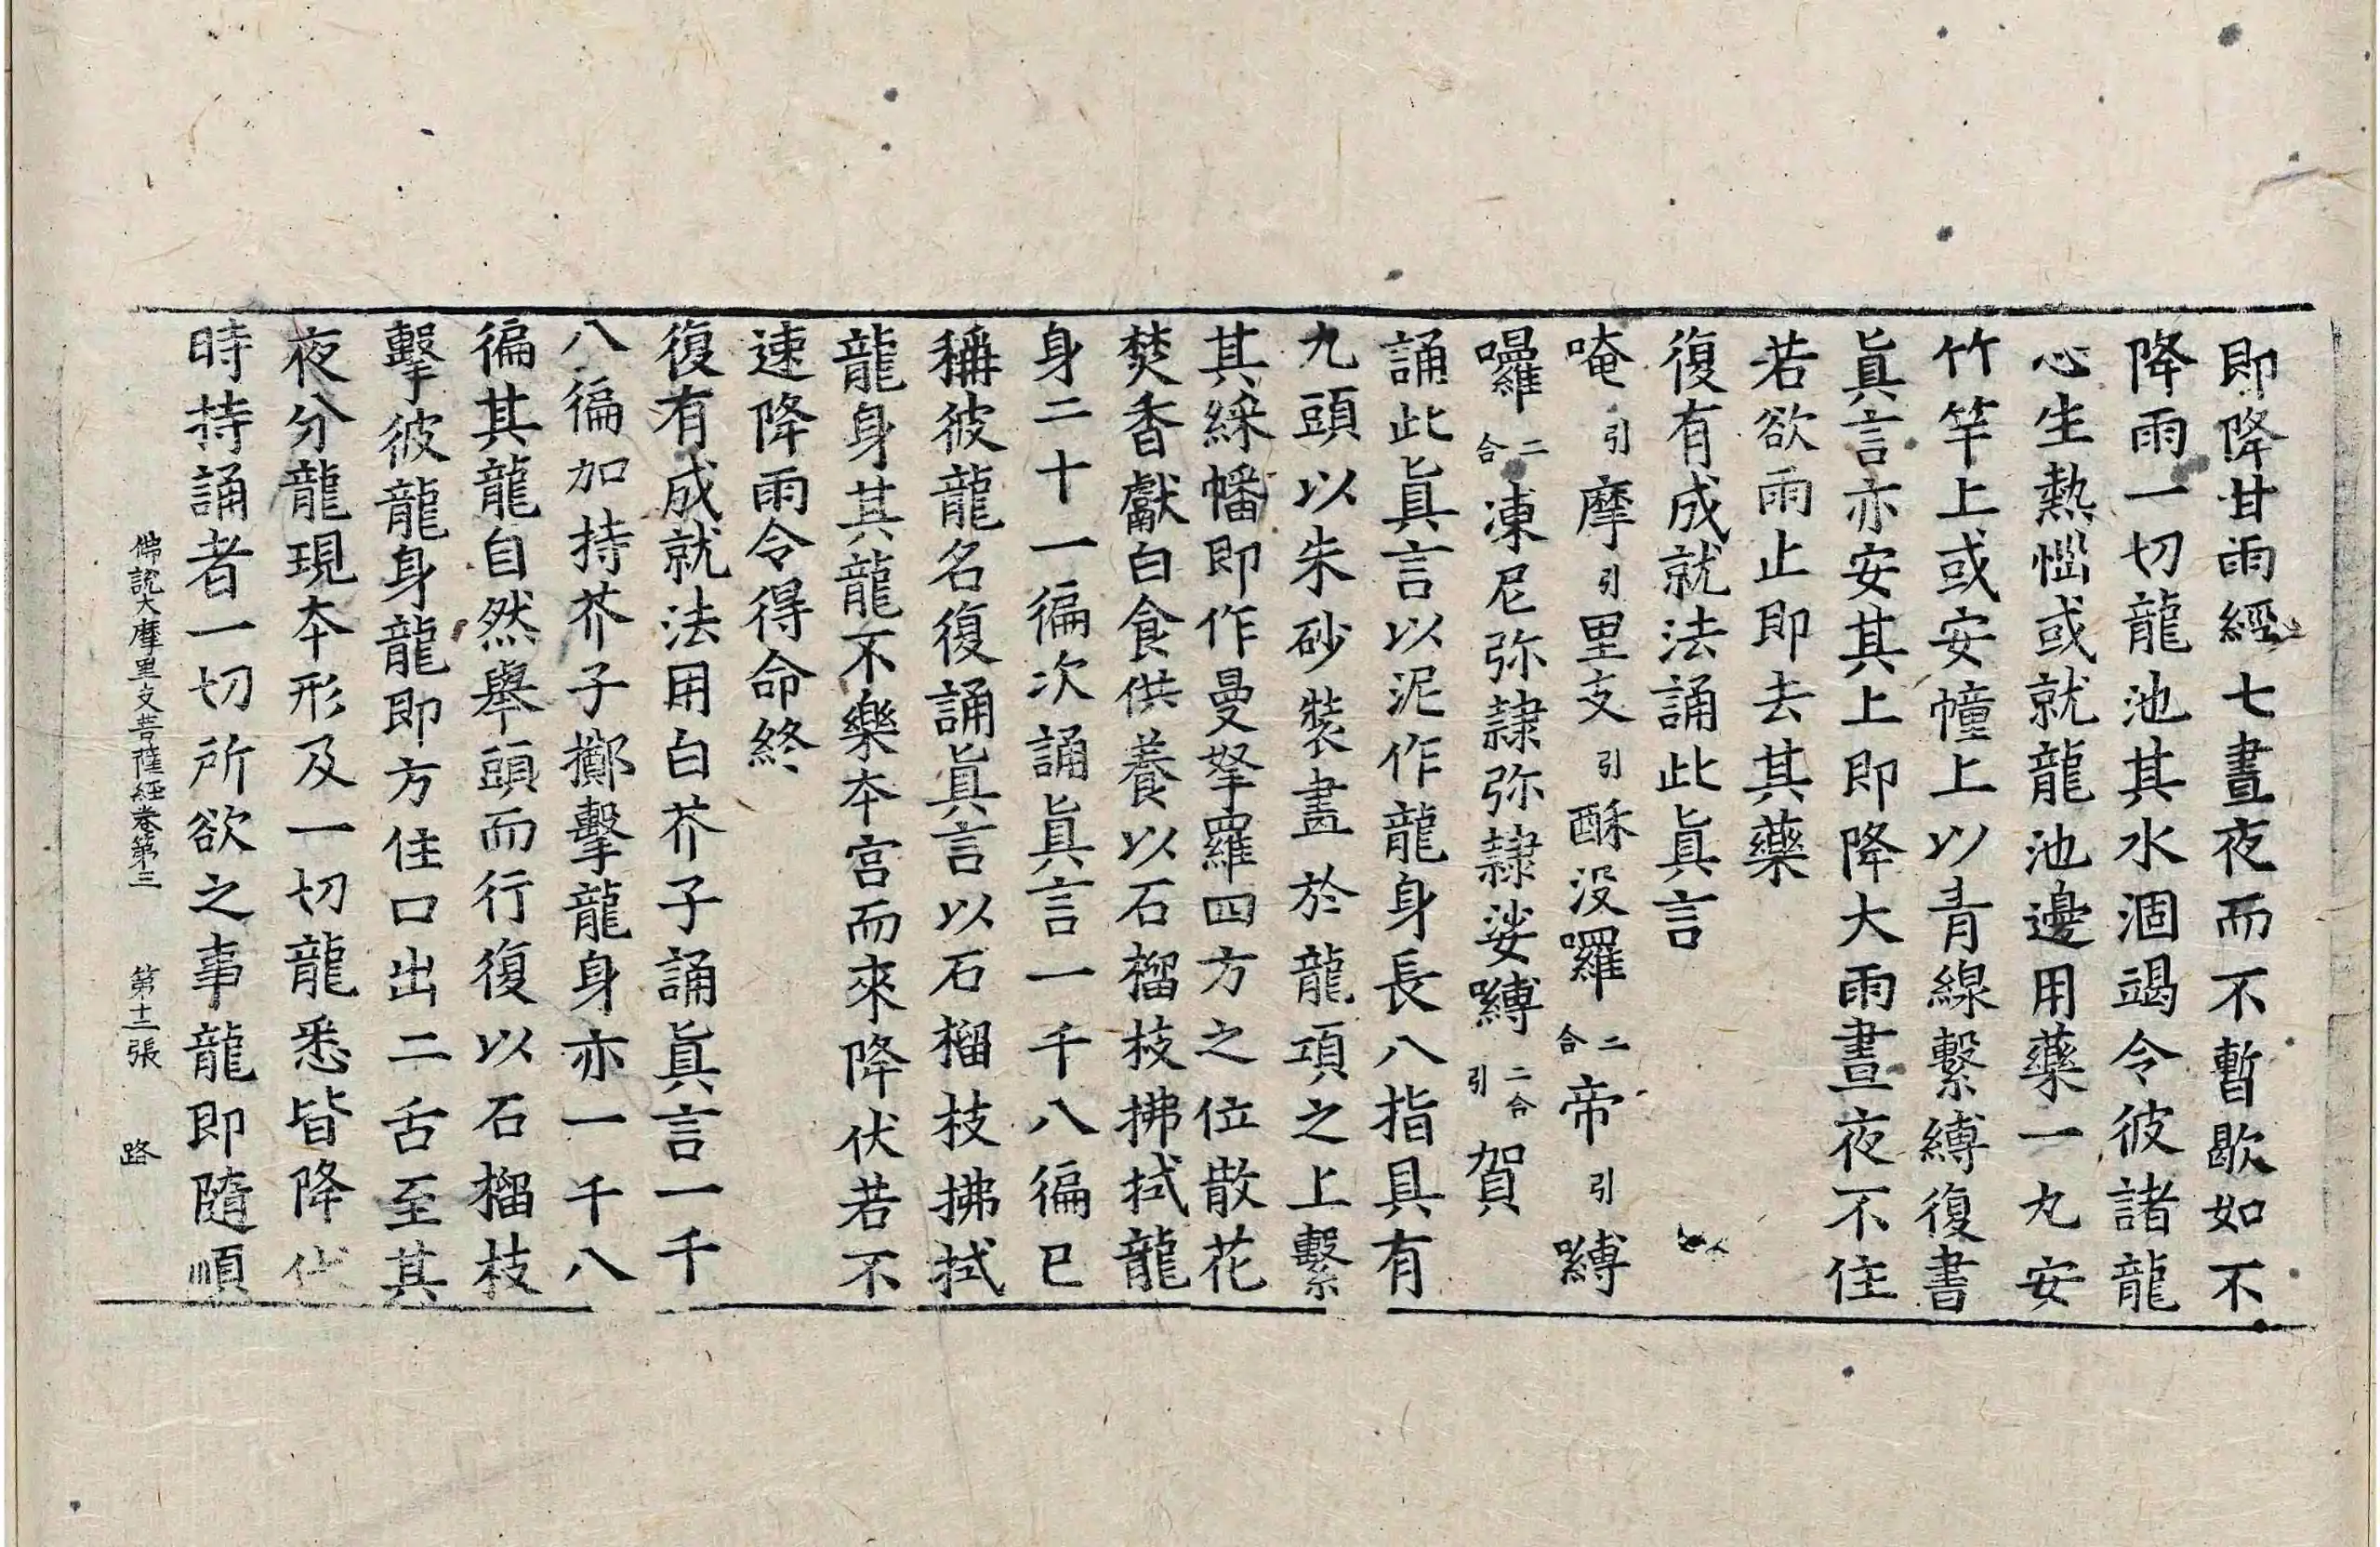 即降甘雨經七晝夜而不暫歇如不
降雨一切龍池其水涸竭令彼諸龍
心生熱惱或就龍池邊用藥一丸安
竹竿上或安幢上以青線繫縛復書
眞言亦安其上即降大雨晝夜不住
若欲雨止即去其藥
復有成就法誦此眞言
唵引摩引里支引酥没囉二合帝引嚩
囉二合凍尼弥隷弥隷娑嚩二合引賀
誦此眞言以泥作龍身長八指具有
九頭以朱砂裝畫於龍項之上繫
其綵幡即作曼拏羅四方之位散花
焚香獻白食供養以石榴枝拂拭龍
身二十一徧次誦眞言一千八徧已
稱彼龍名復誦眞言以石榴枝拂拭
龍身其龍不樂本宫而來降伏若不
速降雨令得命終
復有成就法用白芥子誦眞言一千
八徧加持芥子擲擊龍身亦一千八
徧其龍自然舉頭而行復以石榴枝
擊彼龍身龍即方住口出二舌至其
夜分龍現本形及一切龍悉皆降伏
時持誦者一切所欲之事龍即隨順
佛說大摩里支菩薩經卷第三 第十二張 路